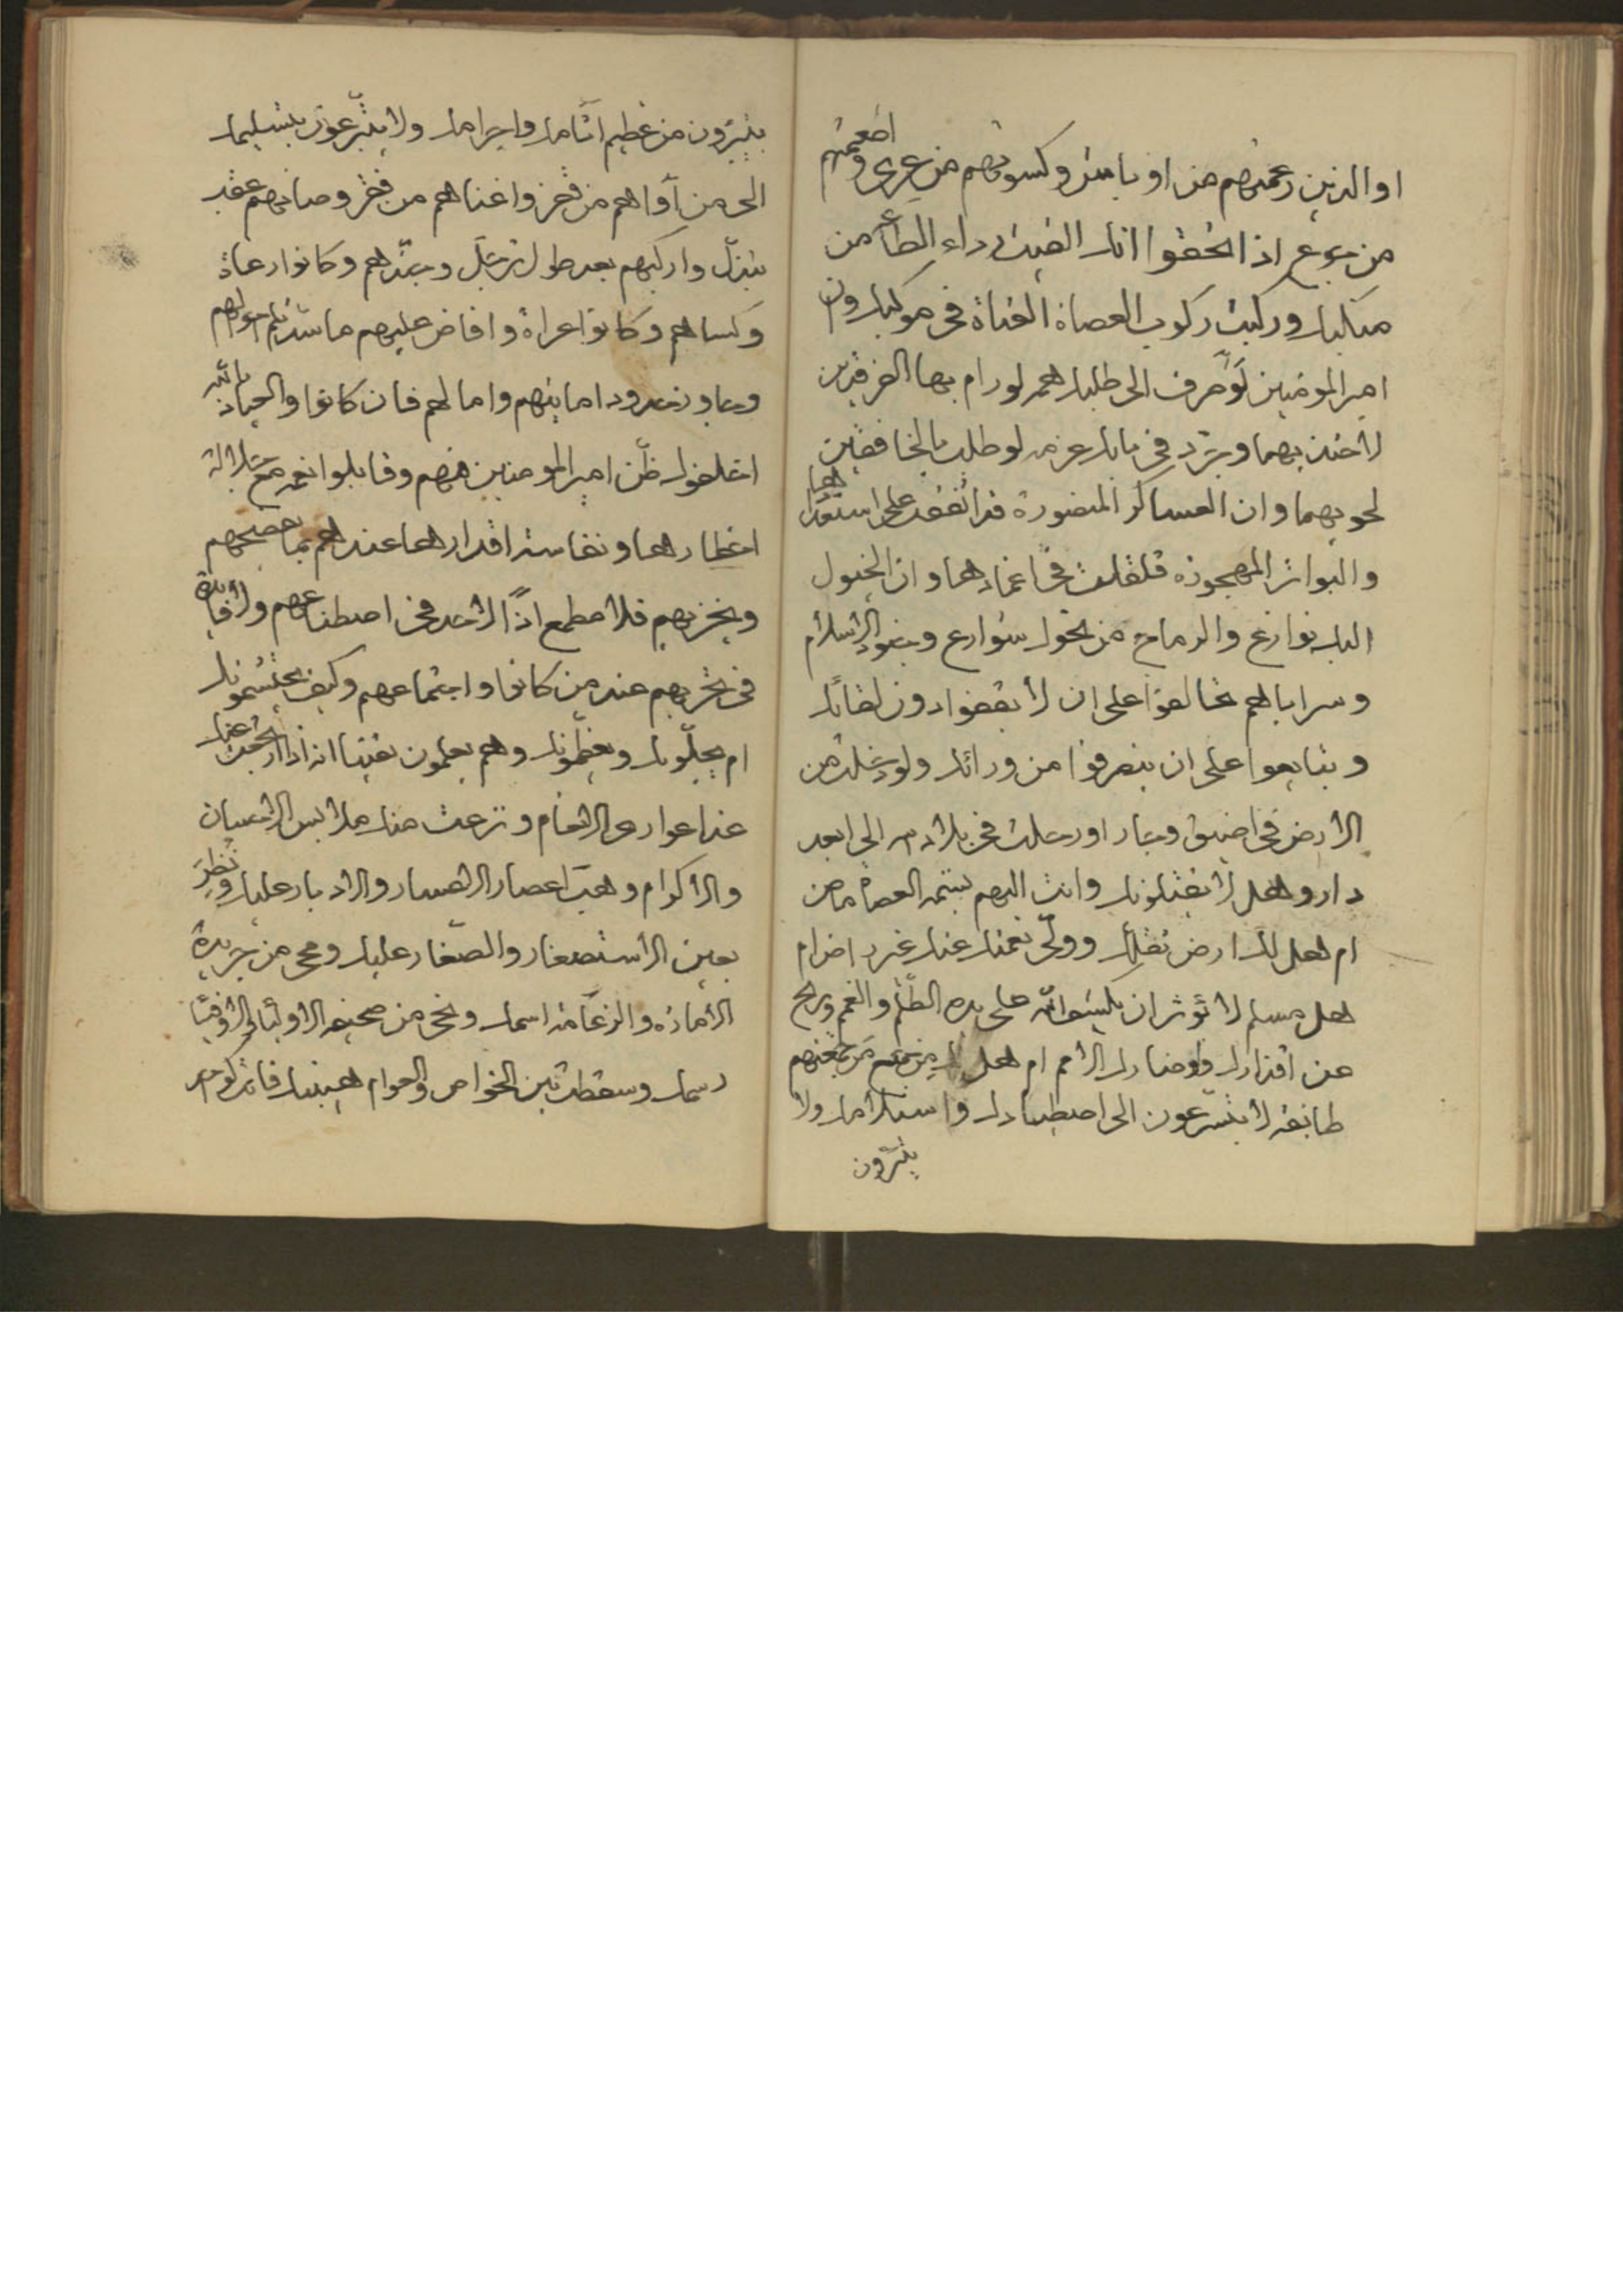 او الذين رعيتهم من اوباش وكسوتهم من عرى واطعمتهم
من جوع اذا تحققوا انك القيت رداء الطاعة من
منكبك وركبت ركوب العصاة العتاة فى موكبك وان
امير المومنين لو صرف الى طلبك همه لو رام بها الفرقدين
لاخذ بهما وجرد فى بابك عزمه لو طلب بها الخافقين
لحويهما وان العساكر المنصورة قد اتفقت على استعدادها
والبواتر المهجوره قلقلت فى اغمادها وان الخيول
اليك نوازع والرماح من نحوك شوارع وجنود الاسلام
وسراياهم تحالفوا على ان لا يقفوا دون لقائك
وتبايعوا على ان ينصرفوا من ورائك ولو دخلت من
الارض فى اضيق وجار او رحلت فى بلاد الله الى ابعد
دار وهل لا يقتلونك وانت اليهم بسمة العصاة
ام هل لك ارض تقلك وولى نعمتك عنك غير راض ام
هل مسلم لا يؤثر ان يكشف الله على يده الظلم والغمم ويريح
عن اقذارك واوضارك الامم ام هل من تجمعهم
طائفه لا يتسرعون الى اصطيادك واستلامك ولا
يتبرون
يتبرون من عظيم اثامك واجرامك ولا يتبرعون بتسليمك
الى من آواهم من قفر واغناهم من فقر وصانهم عقب
تبذل واركبهم بعد طول ترجل وجندهم وكانوا رعاة
وكساهم وكانوا عراة وافاض عليهم ما سد احوالهم
وجاوز حدود امانيهم وامالهم فان كانوا والعياذ بالله
اخلفوا ظن امير المومنين فيهم وقابلوا نعمه مع جلالة
اخطارها ونفاسة اقدارها عندهم بما يفضحهم
ويخزيهم فلا مطمع اذًا لاحد فى اصطناعهم ولا فايدة
فى تحزبهم عند من كانوا واجتماعهم وكيف يحتشمونك
ام يجلونك ويعظمونك وهم يعلمون يقينا انه اذا ارتجعت عنك
عنا عوارى الانعام ونزعت منك ملابس الاحسان
والاكرام وهبت اعصار الاعسار والادبار عليك ونظر
بعين الاستصغار والصغار عليك ومحى من جريدة
الامارة والزعامة اسمك ونحى من صحيفة الاولياء والاوفياء
رسمك وسقطت بين الخواص والعوام هيبتك فانك كواحد